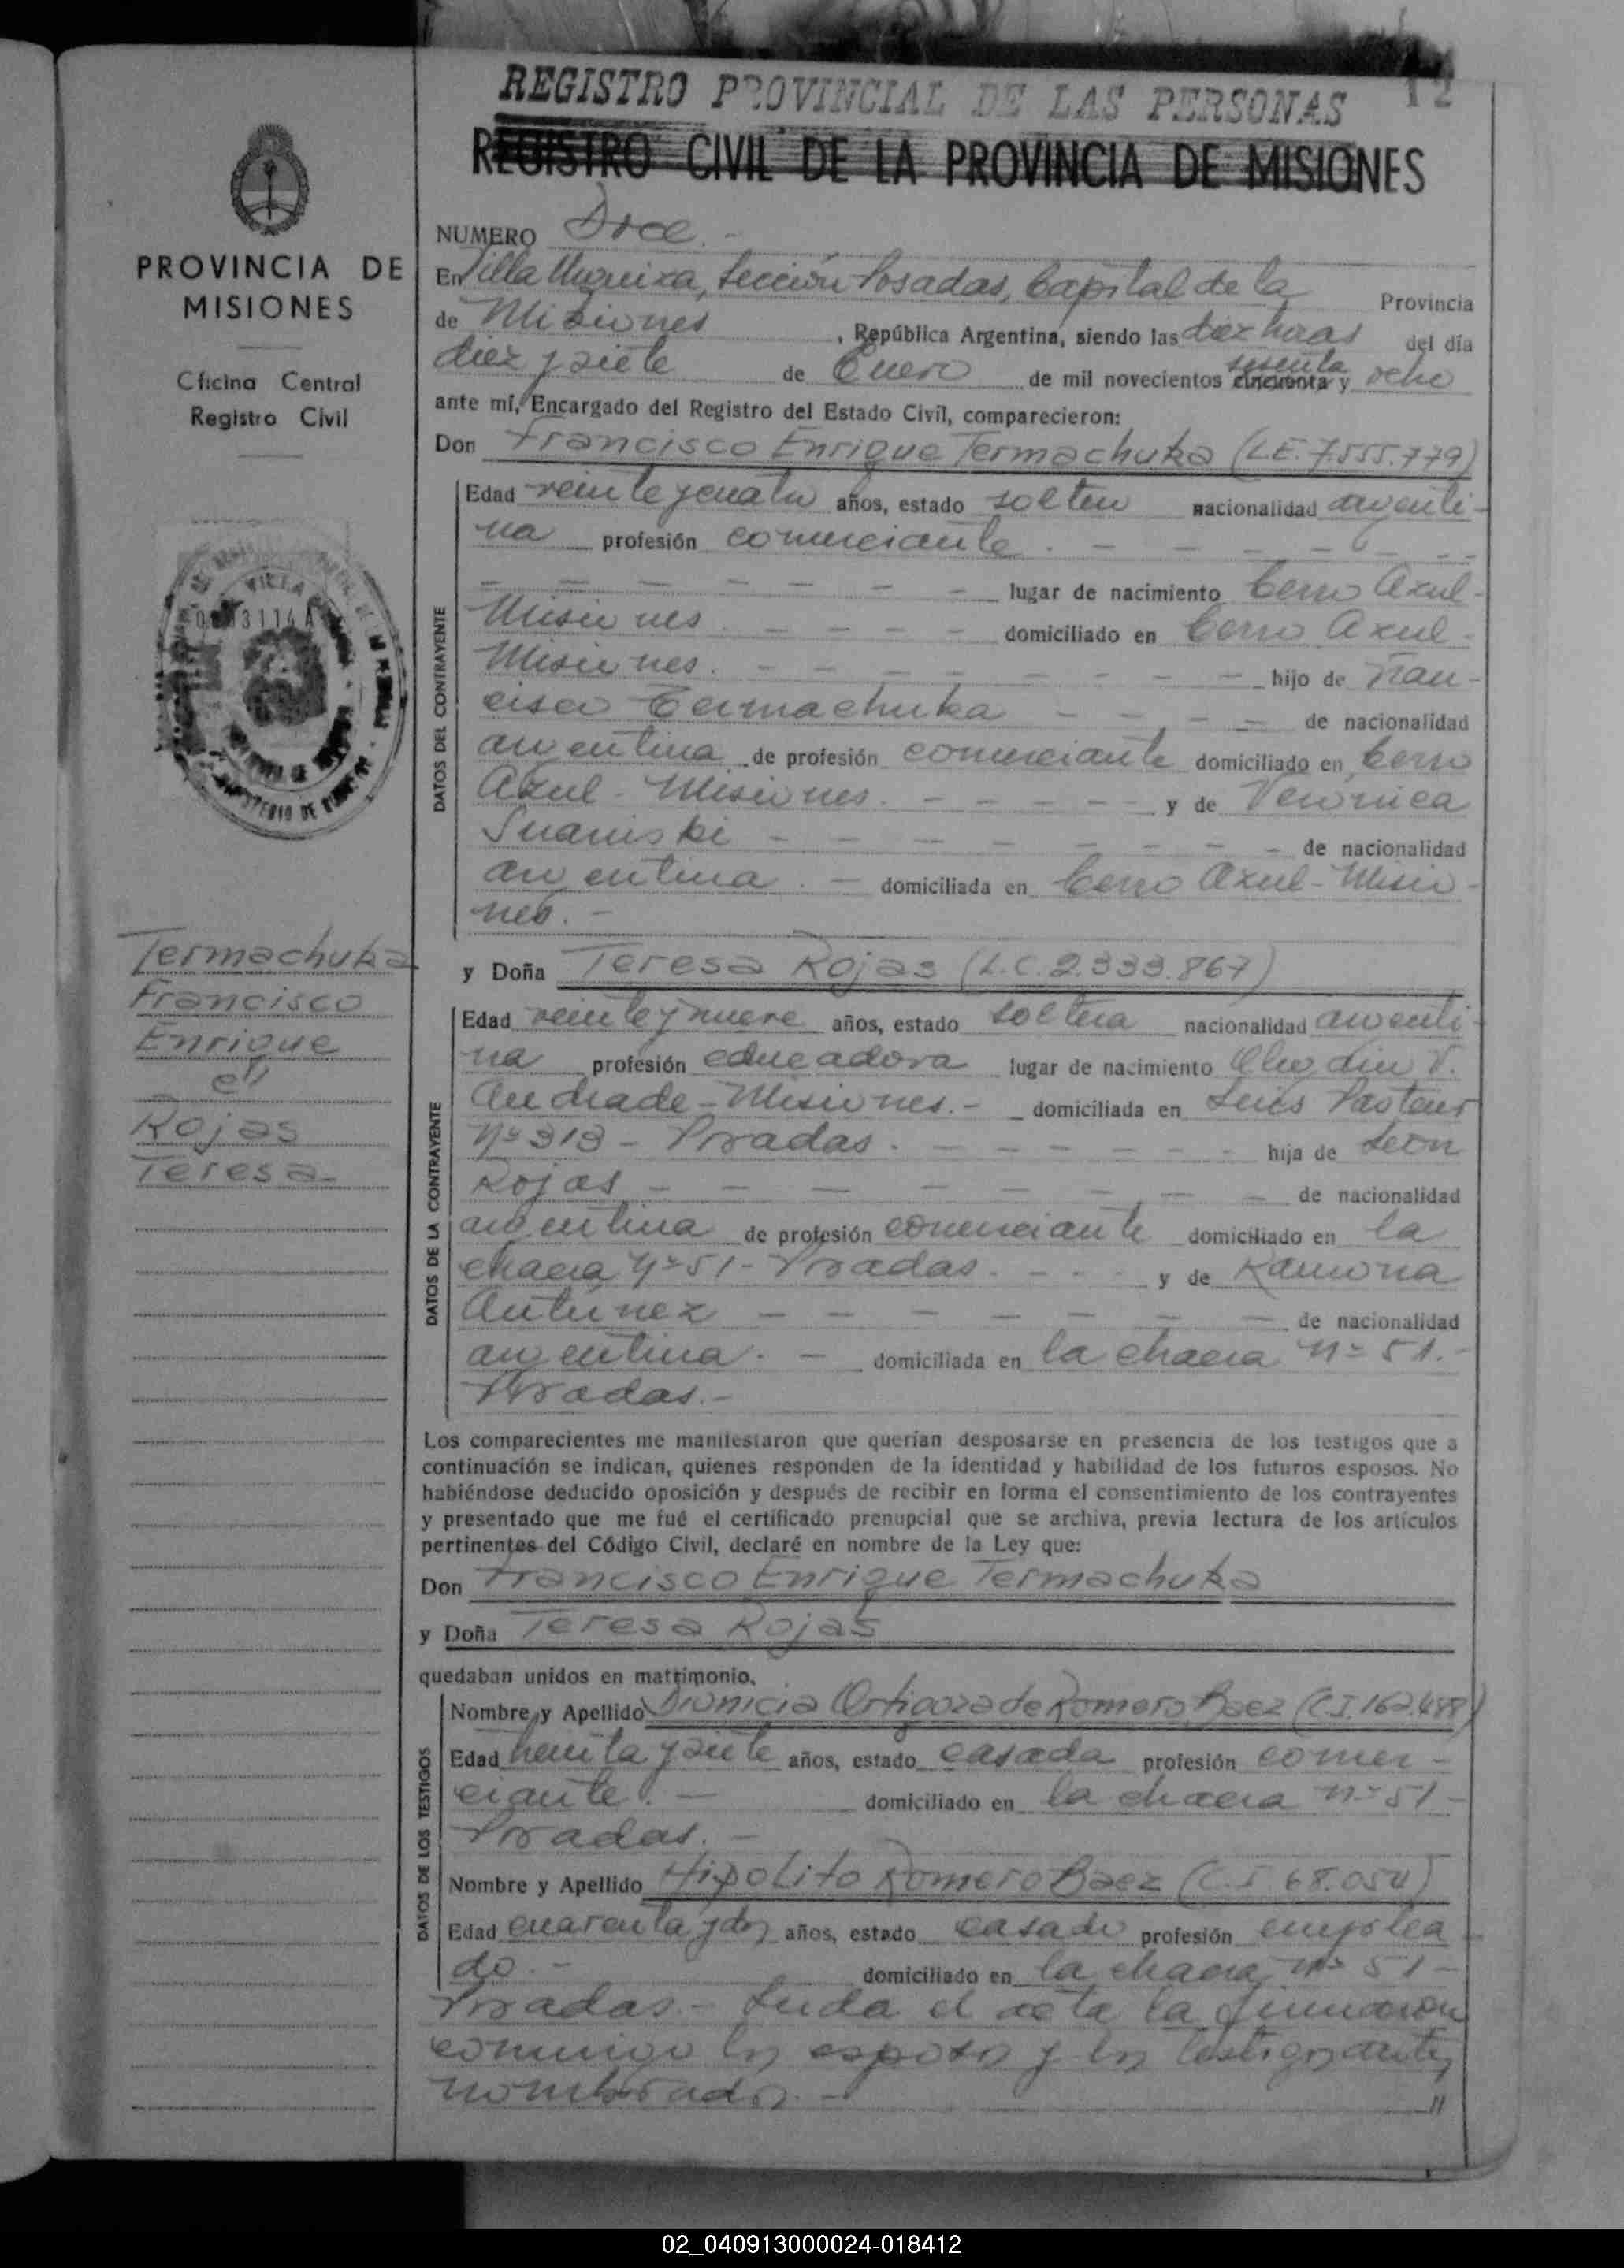 REGISTRO PROVINCIAL DE LAS PERSONAS 12
REGISTRO CIVIL DE LA PROVINCIA DE MISIONES
PROVINCIA DE
MISIONES
Oficina Central
Registro Civil
Termachuka
Francisco
Enrique
c/
Rojas
Teresa
NUMERO Doce.-
En Villa Urquiza, Sección Posadas, Capital de la Provincia
de Misiones, República Argentina, siendo las diez horas del día
diez y siete de Enero de mil novecientos cincuenta sesenta y ocho
ante mí, Encargado del Registro del Estado Civil, comparecieron:
Don Francisco Enrique Termachuka (L.E. 7.555.779)
DATOS DEL CONTRAYENTE
Edad veinte y cuatro años, estado soltero nacionalidad argenti-
na profesión comerciante. - - - - -
- - - - - - - lugar de nacimiento Cerro Azul-
Misiones. - - - - domiciliado en Cerro Azul-
Misiones. - - - - - - - hijo de Fran-
cisco Termachuka - - - - de nacionalidad
argentina de profesión comerciante domiciliado en Cerro
Azul-Misiones. - - - - - y de Veronica
Suaniski - - - - - - - - de nacionalidad
argentina. - domiciliada en Cerro Azul-Misio-
nes.-
y Doña Teresa Rojas (L.C. 2.333.867)
DATOS DE LA CONTRAYENTE
Edad veinte y nueve años, estado soltera nacionalidad argenti-
na profesión educadora lugar de nacimiento Olegario V.
Andrade-Misiones.- domiciliada en Luis Pasteur
Nº 313-Posadas. - - - - - - hija de Leon
Rojas - - - - - - - - de nacionalidad
argentina de profesión comerciante domiciliado en la
chacra Nº 51-Posadas. - - - y de Ramona
Antúnez - - - - - - - de nacionalidad
argentina. - domiciliada en la chacra nº 51.-
Posadas.-
Los comparecientes me manifestaron que querían desposarse en presencia de los testigos que a
continuación se indican, quienes responden de la identidad y habilidad de los futuros esposos. No
habiéndose deducido oposición y después de recibir en forma el consentimiento de los contrayentes
y presentado que me fué el certificado prenupcial que se archiva, previa lectura de los artículos
pertinentes del Código Civil, declaré en nombre de la Ley que:
Don Francisco Enrique Termachuka
y Doña Teresa Rojas
quedaban unidos en matrimonio.
DATOS DE LOS TESTIGOS
Nombre y Apellido Dionicia Ortigoza de Romero Baez (C.I. 162.488)
Edad treinta y siete años, estado casada profesión comer-
ciante. - domiciliado en la chacra nº 51-
Posadas. -
Nombre y Apellido Hipolito Romero Baez (C.I. 68.054)
Edad cuarenta y dos años, estado casado profesión emplea-
do.- domiciliado en la chacra nº 51-
Posadas.- Leida el acta la firmaron
conmigo los esposos y los testigos antes
nombrados.-
02_040913000024-018412